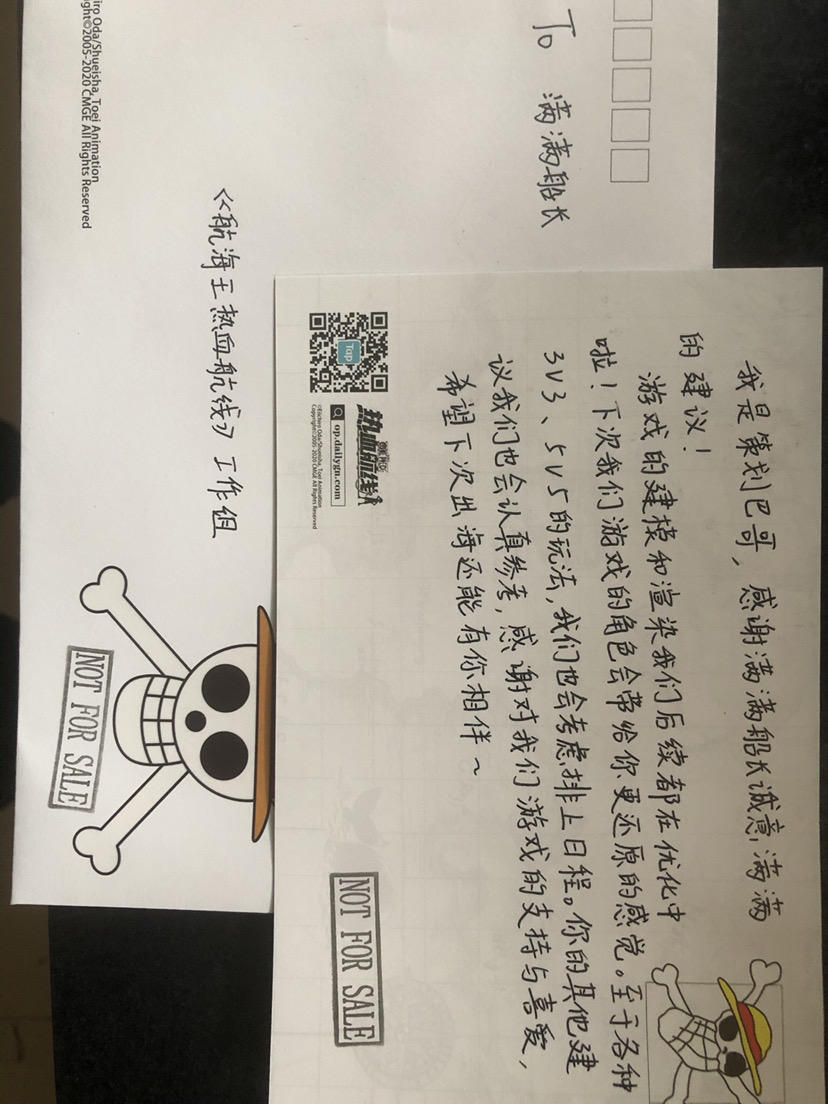 To 满满船长
《航海王热血航线》工作组
iro Oda/Shueisha, Toei Animation
ght©2005-2020 CMGE All Rights Reserved
NOT FOR SALE
我是策划巴哥，感谢满满船长诚意满满
的建议！
游戏的建模和渲染我们后续都在优化中
啦！下次我们游戏的角色会带给你更还原的感觉。至于各种
3V3、5V5的玩法，我们也会考虑排上日程。你的其他建
议我们也会认真参考，感谢对我们游戏的支持与喜爱，
希望下次出海还能有你相伴～
Tap
热血航线
op.dailygn.com
©Eiichiro Oda/Shueisha, Toei Animation
Copyright©2005-2020 CMGE All Rights Reserved
NOT FOR SALE